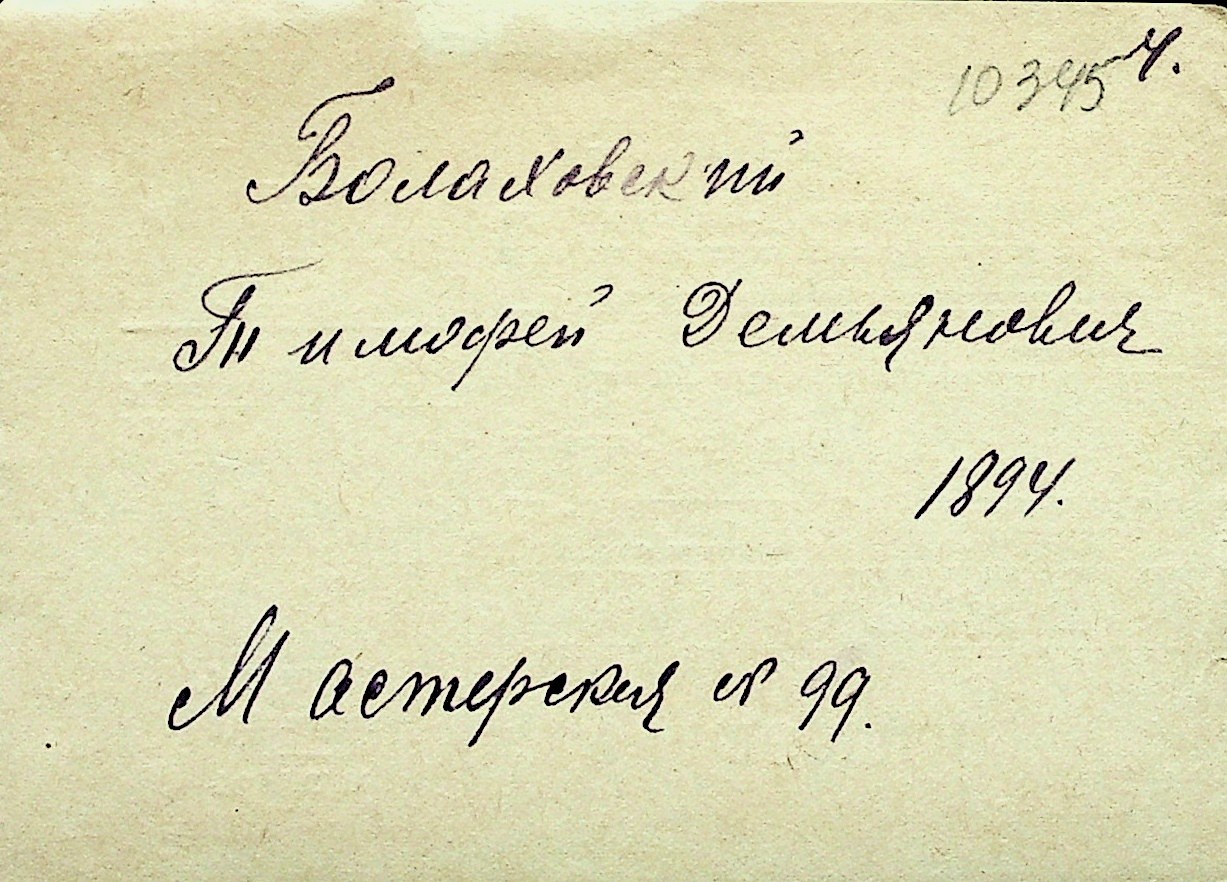 10345 ч.
Болаховский
Тимофей Демьянович
1894.
Мастерская № 99.